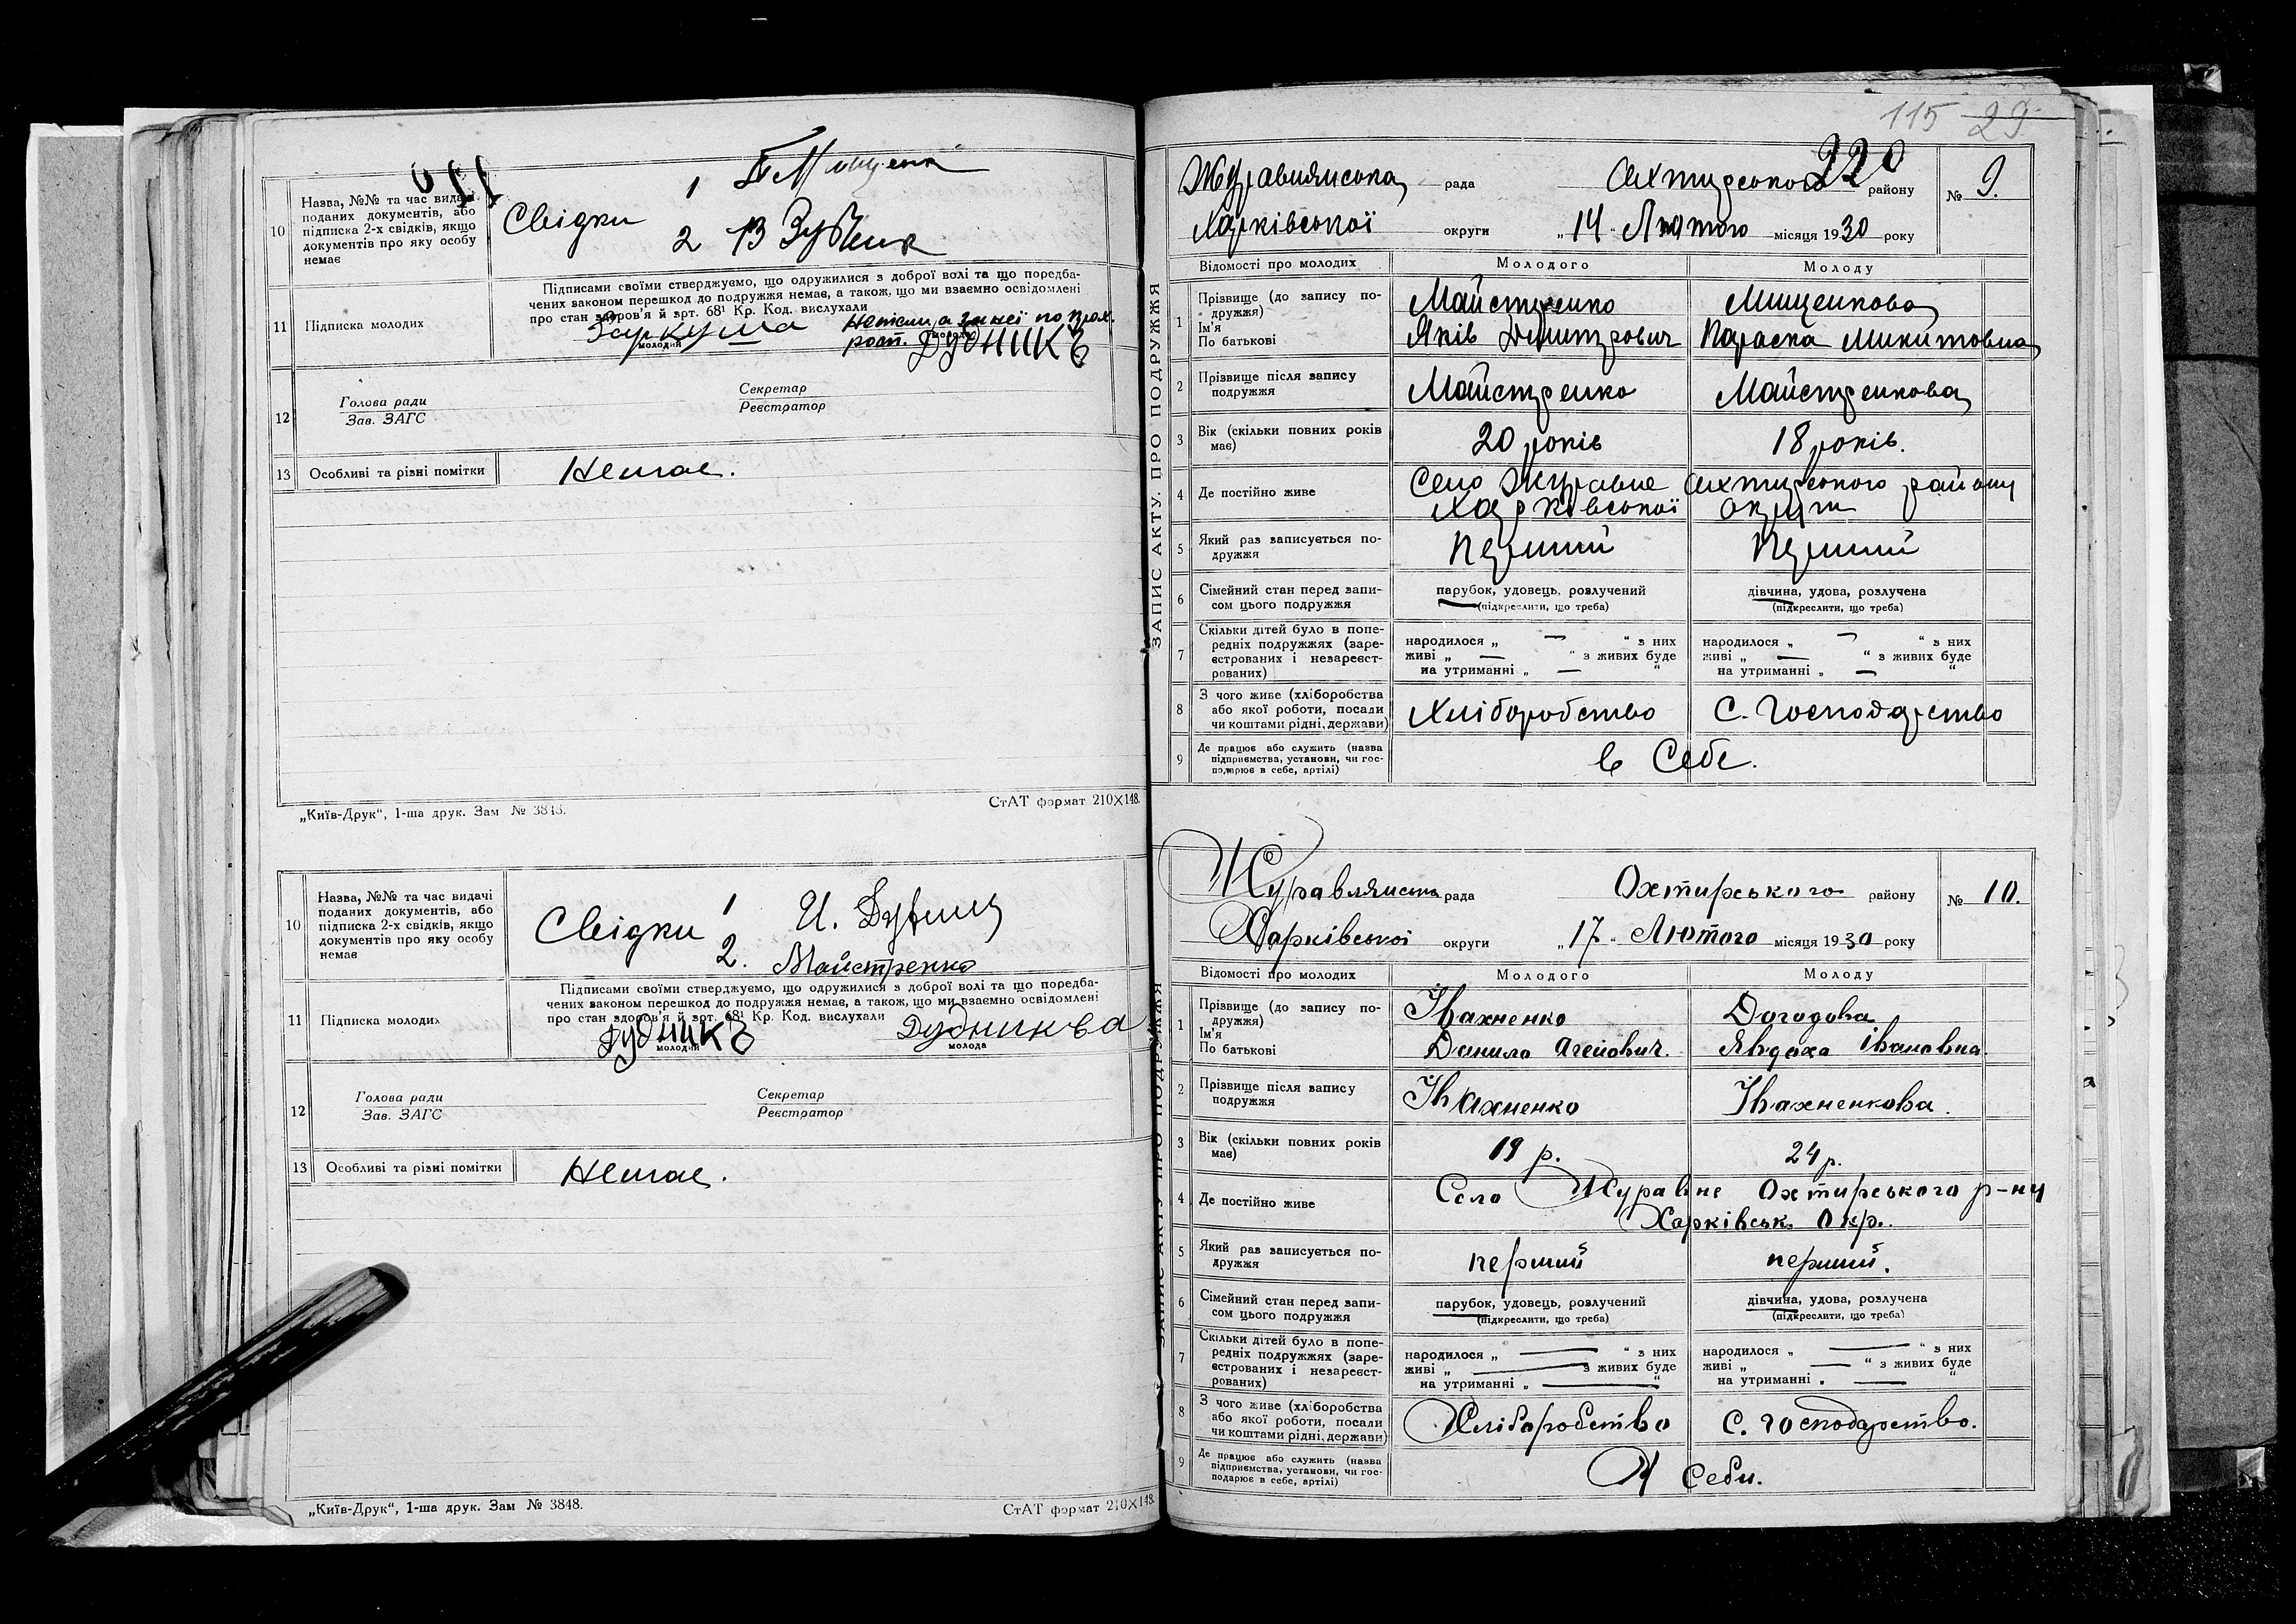 10
Назва, №№ та час видачі
поданих документів, або
підписка 2-х свідків, якщо
документів про яку особу
немає
Свідки
1
2 В Зубченк
11
Підписка молодих
Підписами своїми стверджуємо, що одружилися з доброї волі та що поредба-
чених законом перешкод до подружжя немає, а також, що ми взаємно освідомлені
про стан здоров'я й арт. 68¹ Кр. Код. вислухали
Гаркуша
молодий
Непісм, а за неї по
Дудникъ
12
Голова ради
Зав. ЗАГС
Секретар
Реєстратор
13
Особливі та різні помітки
Немає.
„Київ-Друк“, 1-ша друк. Зам № 3848.
СтАТ формат 210×148.
10
Назва, №№ та час видачі
поданих документів, або
підписка 2-х свідків, якщо
документів про яку особу
немає
Свідки
1 И.
2. Майстренко
11
Підписка молодих
Підписами своїми стверджуємо, що одружилися з доброї волі та що поредба-
чених законом перешкод до подружжя немає, а також, що ми взаємно освідомлені
про стан здоров'я й арт. 68¹ Кр. Код. вислухали
Дудникъ
молодий
Дудникова
молода
12
Голова ради
Зав. ЗАГС
Секретар
Реєстратор
13
Особливі та різні помітки
Немає.
„Київ-Друк“, 1-ша друк. Зам № 3848.
СтАТ формат 210×148.
115 29
220
ЗАПИС АКТУ ПРО ПОДРУЖЖЯ
Журавлянська рада Охтирського району № 9.
Харківської округи „14“ Лютого місяця 1930 року
Відомості про молодих Молодого Молоду
1
Прізвище (до запису по-
дружжя)
Ім'я
По батькові
Майстренко Мищенкова
Яків Дмитрович Параска Микитовна
2
Прізвище після запису
подружжя
Майстренко Майстренкова
3
Вік (скільки повних років
має)
20 років 18 років.
4
Де постійно живе
Село Журавне Охтирського району
Харківської округи
5
Який раз записується по-
дружжя
Перший Перший
6
Сімейний стан перед запи-
сом цього подружжя
парубок, удовець, розлучений дівчина, удова, розлучена
(підкреслити, що треба) (підкреслити, що треба)
7
Скільки дітей було в попе-
редніх подружжях (заре-
єстрованих і незареєст-
рованих)
народилося „ — “ з них народилося „ — “ з них
живі „ — “ з живих буде живі „ — “ з живих буде
на утриманні „ — “ на утриманні „ — “
8
З чого живе (хліборобства
або якої роботи, посади
чи коштами рідні, держави)
Хліборобство С. Господарство
9
Де працює або служить (назва
підприємства, установи, чи гос-
подарює в себе, артілі)
в Себе.
ЗАПИС АКТУ ПРО ПОДРУЖЖЯ
Журавлянська рада Охтирського району № 10.
Харківської округи „17“ Лютого місяця 1930 року
Відомості про молодих Молодого Молоду
1
Прізвище (до запису по-
дружжя)
Ім'я
По батькові
Івахненко Догодова
Данило Агейович. Явдоха Івановна.
2
Прізвище після запису
подружжя
Івахненко Івахненкова.
3
Вік (скільки повних років
має)
19 р. 24 р.
4
Де постійно живе
Село Журавне Охтирського р-ну
Харківськ. Окр.
5
Який раз записується по-
дружжя
перший перший.
6
Сімейний стан перед запи-
сом цього подружжя
парубок, удовець, розлучений дівчина, удова, розлучена
(підкреслити, що треба) (підкреслити, що треба)
7
Скільки дітей було в попе-
редніх подружжях (заре-
єстрованих і незареєст-
рованих)
народилося „ — “ з них народилося „ — “ з них
живі „ — з живих буде живі „ — “ з живих буде
на утриманні „ — “ на утриманні „ — “
8
З чого живе (хліборобства
або якої роботи, посади
чи коштами рідні, держави)
Хліборобство С. господарство.
9
Де працює або служить (назва
підприємства, установи, чи гос-
подарює в себе, артілі)
У себи.